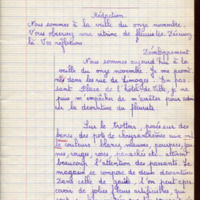 Rédaction
Nous sommes à la veille du onze novembre.
Vous observez une vitrine de fleuriste. Décrivez
la. Vos réflexions
Développement
Nous sommes aujourd'hui à la
veille du onze novembre. Je me promè-
nais dans les rues de Limoges. En pas-
sant Place de l'hôtel de Ville, je ne
puis m'empêcher de m'arrêter pour admi-
rer la devanture du fleuriste.
Sur le trottoir, posés sur des
bancs, des pots de chrysanthèmes aux
couleurs blanches, mauves, pourpres, jau-
nes, rouges, roses, panachés et, attirent
beaucoup l'attention des passants. Le
magasin se compose de deux devantures.
Dans celle de gauche, l'on peut aper-
cevoir de jolies fleurs artificielles